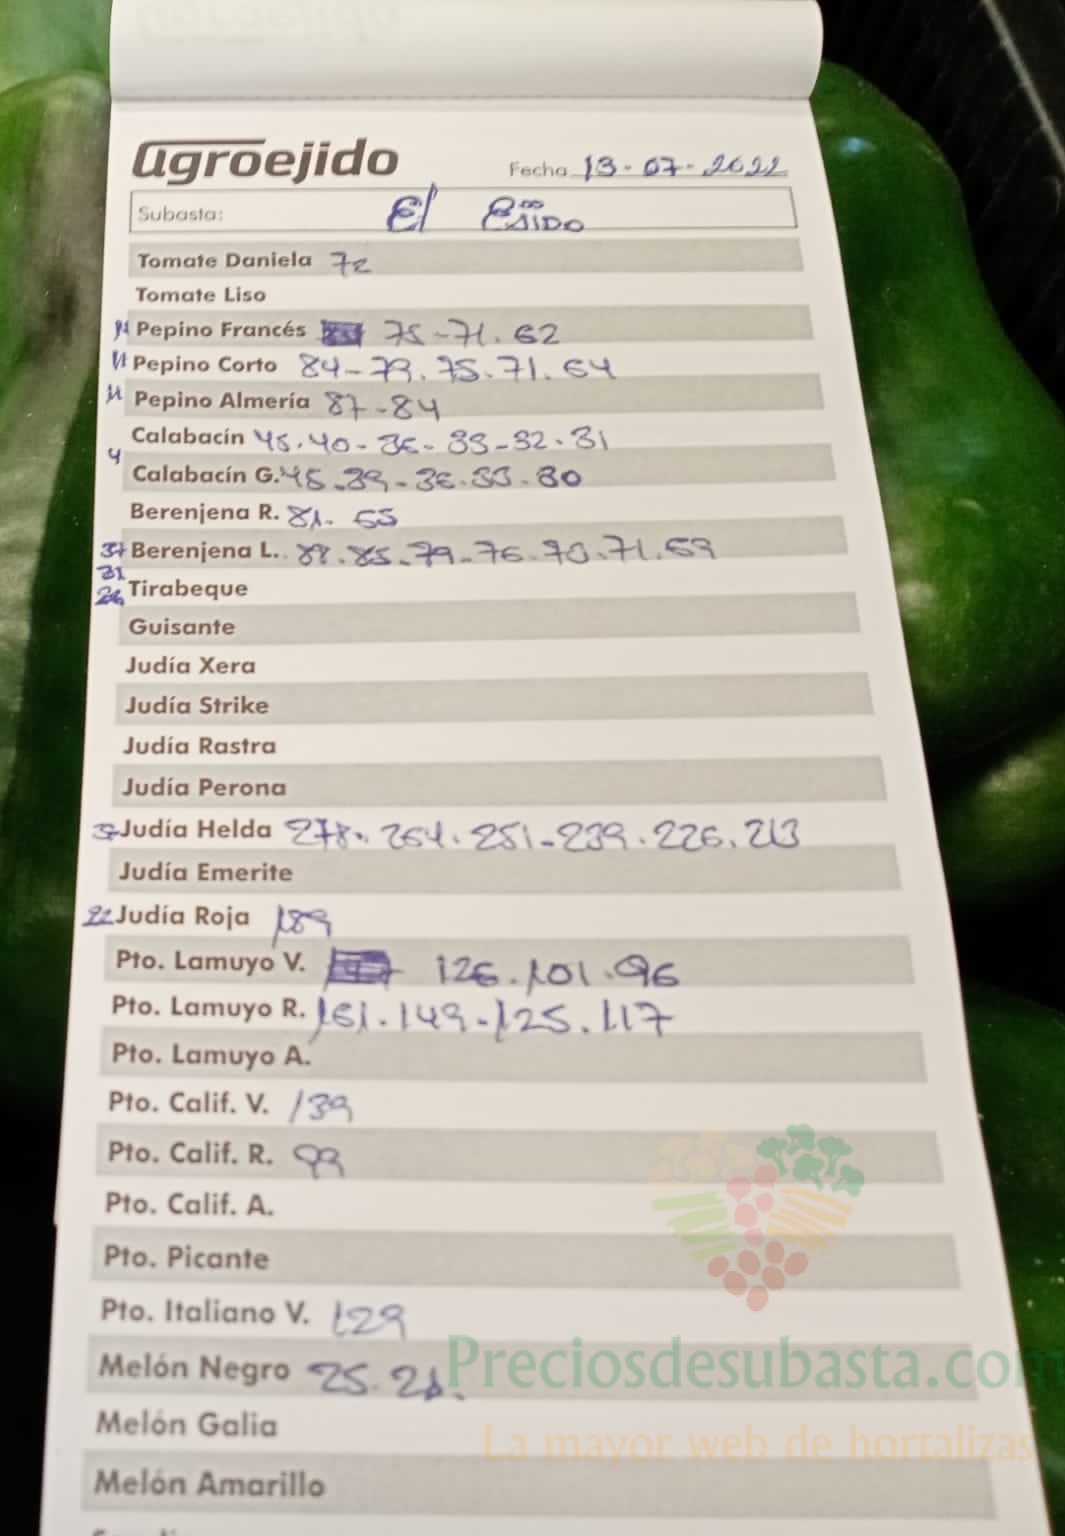 agroejido
Fecha 13-07-2022
Subasta: El EJIDO
Tomate Daniela 72
Tomate Liso
Pepino Francés 75-71.62
Pepino Corto 84-79.75.71.64
Pepino Almería 87-84
Calabacín 45.40-36-33-32.31
4
Calabacín G. 45.39-36.33.30
Berenjena R. 81. 65
37 Berenjena L. 88.85-79-76-70.71.69
31
Tirabeque
Guisante
Judía Xera
Judía Strike
Judía Rastra
Judía Perona
Judía Helda 278. 264. 251-239.226.213
Judía Emerite
22 Judía Roja 189
Pto. Lamuyo V. 126.101.96
Pto. Lamuyo R. 161.149-125.117
Pto. Lamuyo A.
Pto. Calif. V. 139
Pto. Calif. R. 99
Pto. Calif. A.
Pto. Picante
Pto. Italiano V. 129
Melón Negro 25.
Preciosdesubasta.com
Melón Galia
La mayor web de hortalizas
Melón Amarillo